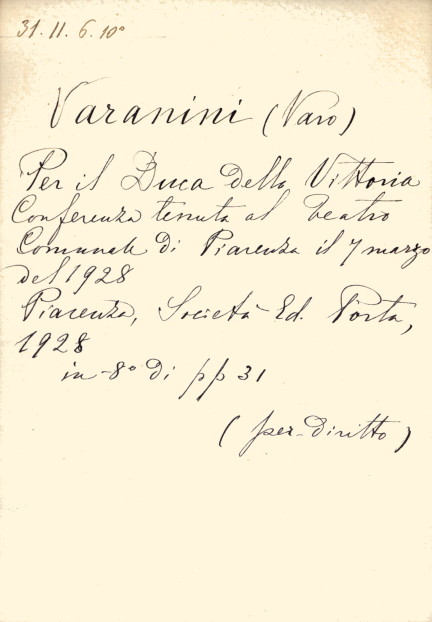 31. II. 6. 10°
Varanini (Varo)
Per il Duca della Vittoria
Conferenza tenuta al Teatro
Comunale di Piacenza il 7 marzo
del 1928
Piacenza, Società Ed. Porta,
1928
in-8° di pp 31
(per diritto)